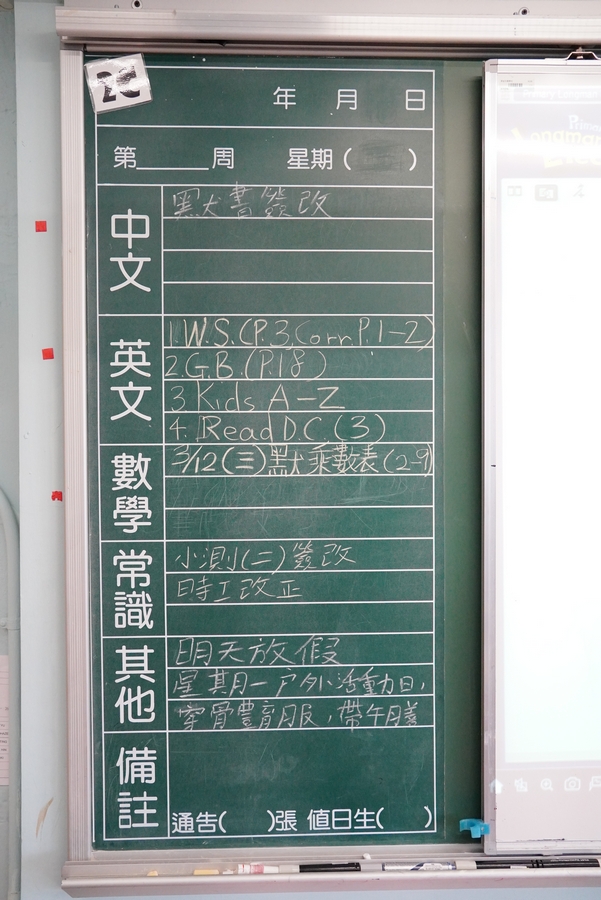 2C
年 月 日
第______周 星期( )
中文
默書簽改
英文
1.W.S.(P.3,Corr.P.1-2)
2.G.B.(P.18)
3.Kids A-Z
4. Read D.C.(3)
數學
3/12(三)默乘數表(2-9)
常識
小測(二)簽改
時工改正
其他
明天放假
星期一戶外活動日,
穿體育服,帶午膳
備註
通告( )張 值日生( )